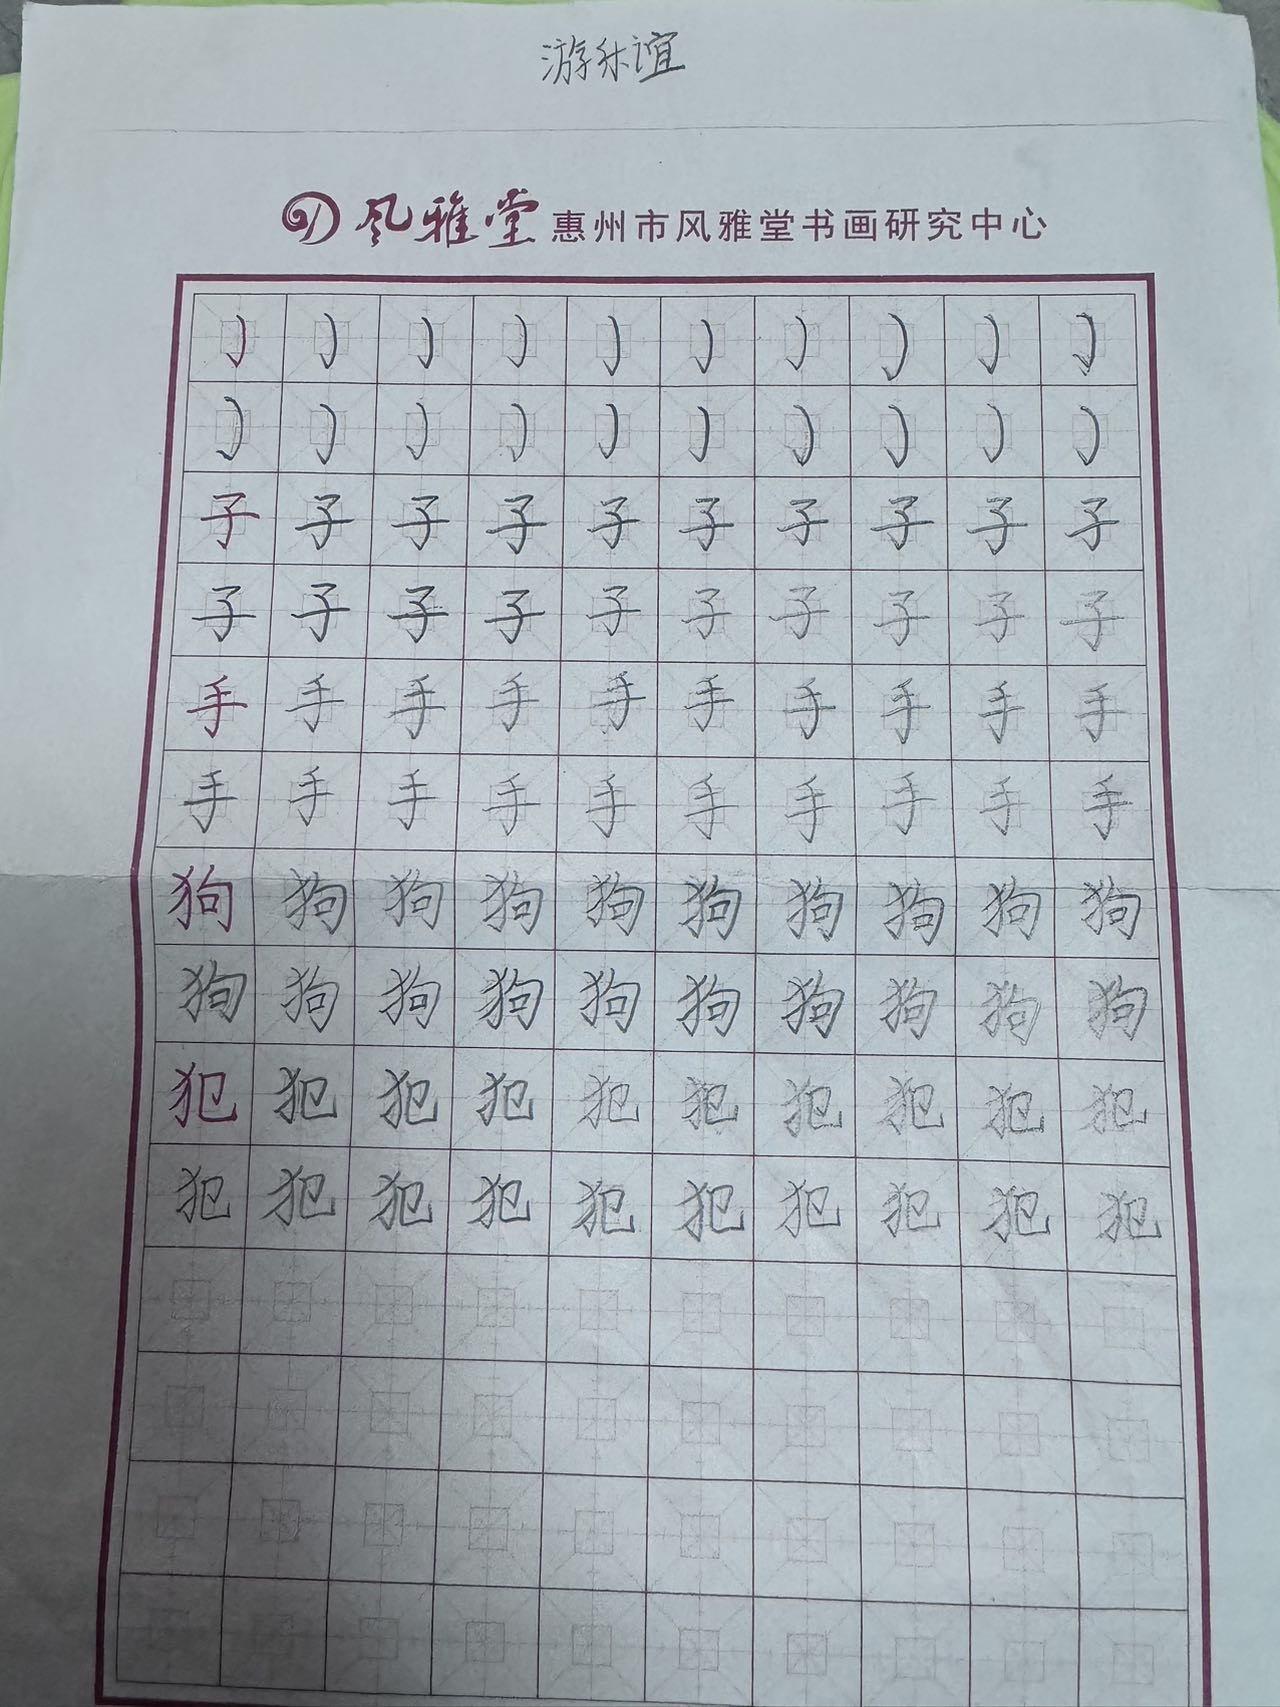 游秋谊
风雅堂 惠州市风雅堂书画研究中心
子子子子子子子子子子
子子子子子子子子子子
手手手手手手手手手手
手手手手手手手手手手
狗狗狗狗狗狗狗狗狗狗
狗狗狗狗狗狗狗狗狗狗
犯犯犯犯犯犯犯犯犯犯
犯犯犯犯犯犯犯犯犯犯